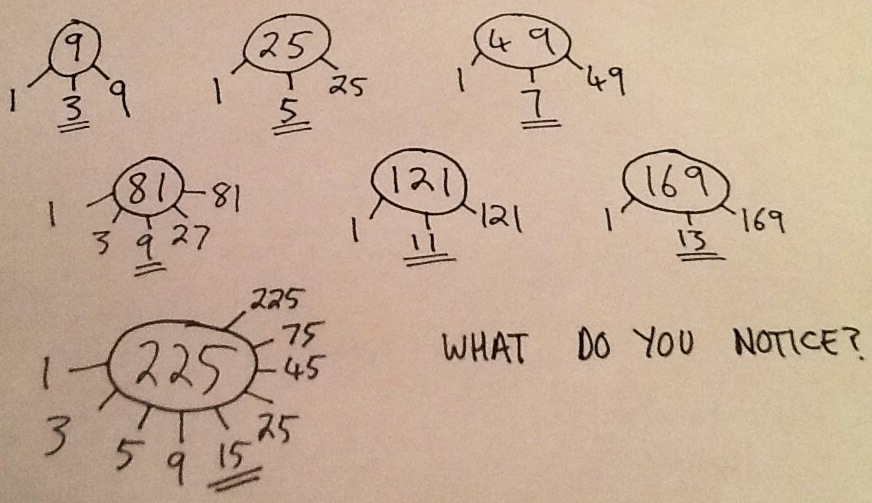 9
1 3 9
25
1 5 25
49
1 7 49
81
1 3 9 27 81
121
1 11 121
169
1 13 169
225
1 3 5 9 15 25 45 75 225
WHAT DO YOU NOTICE?